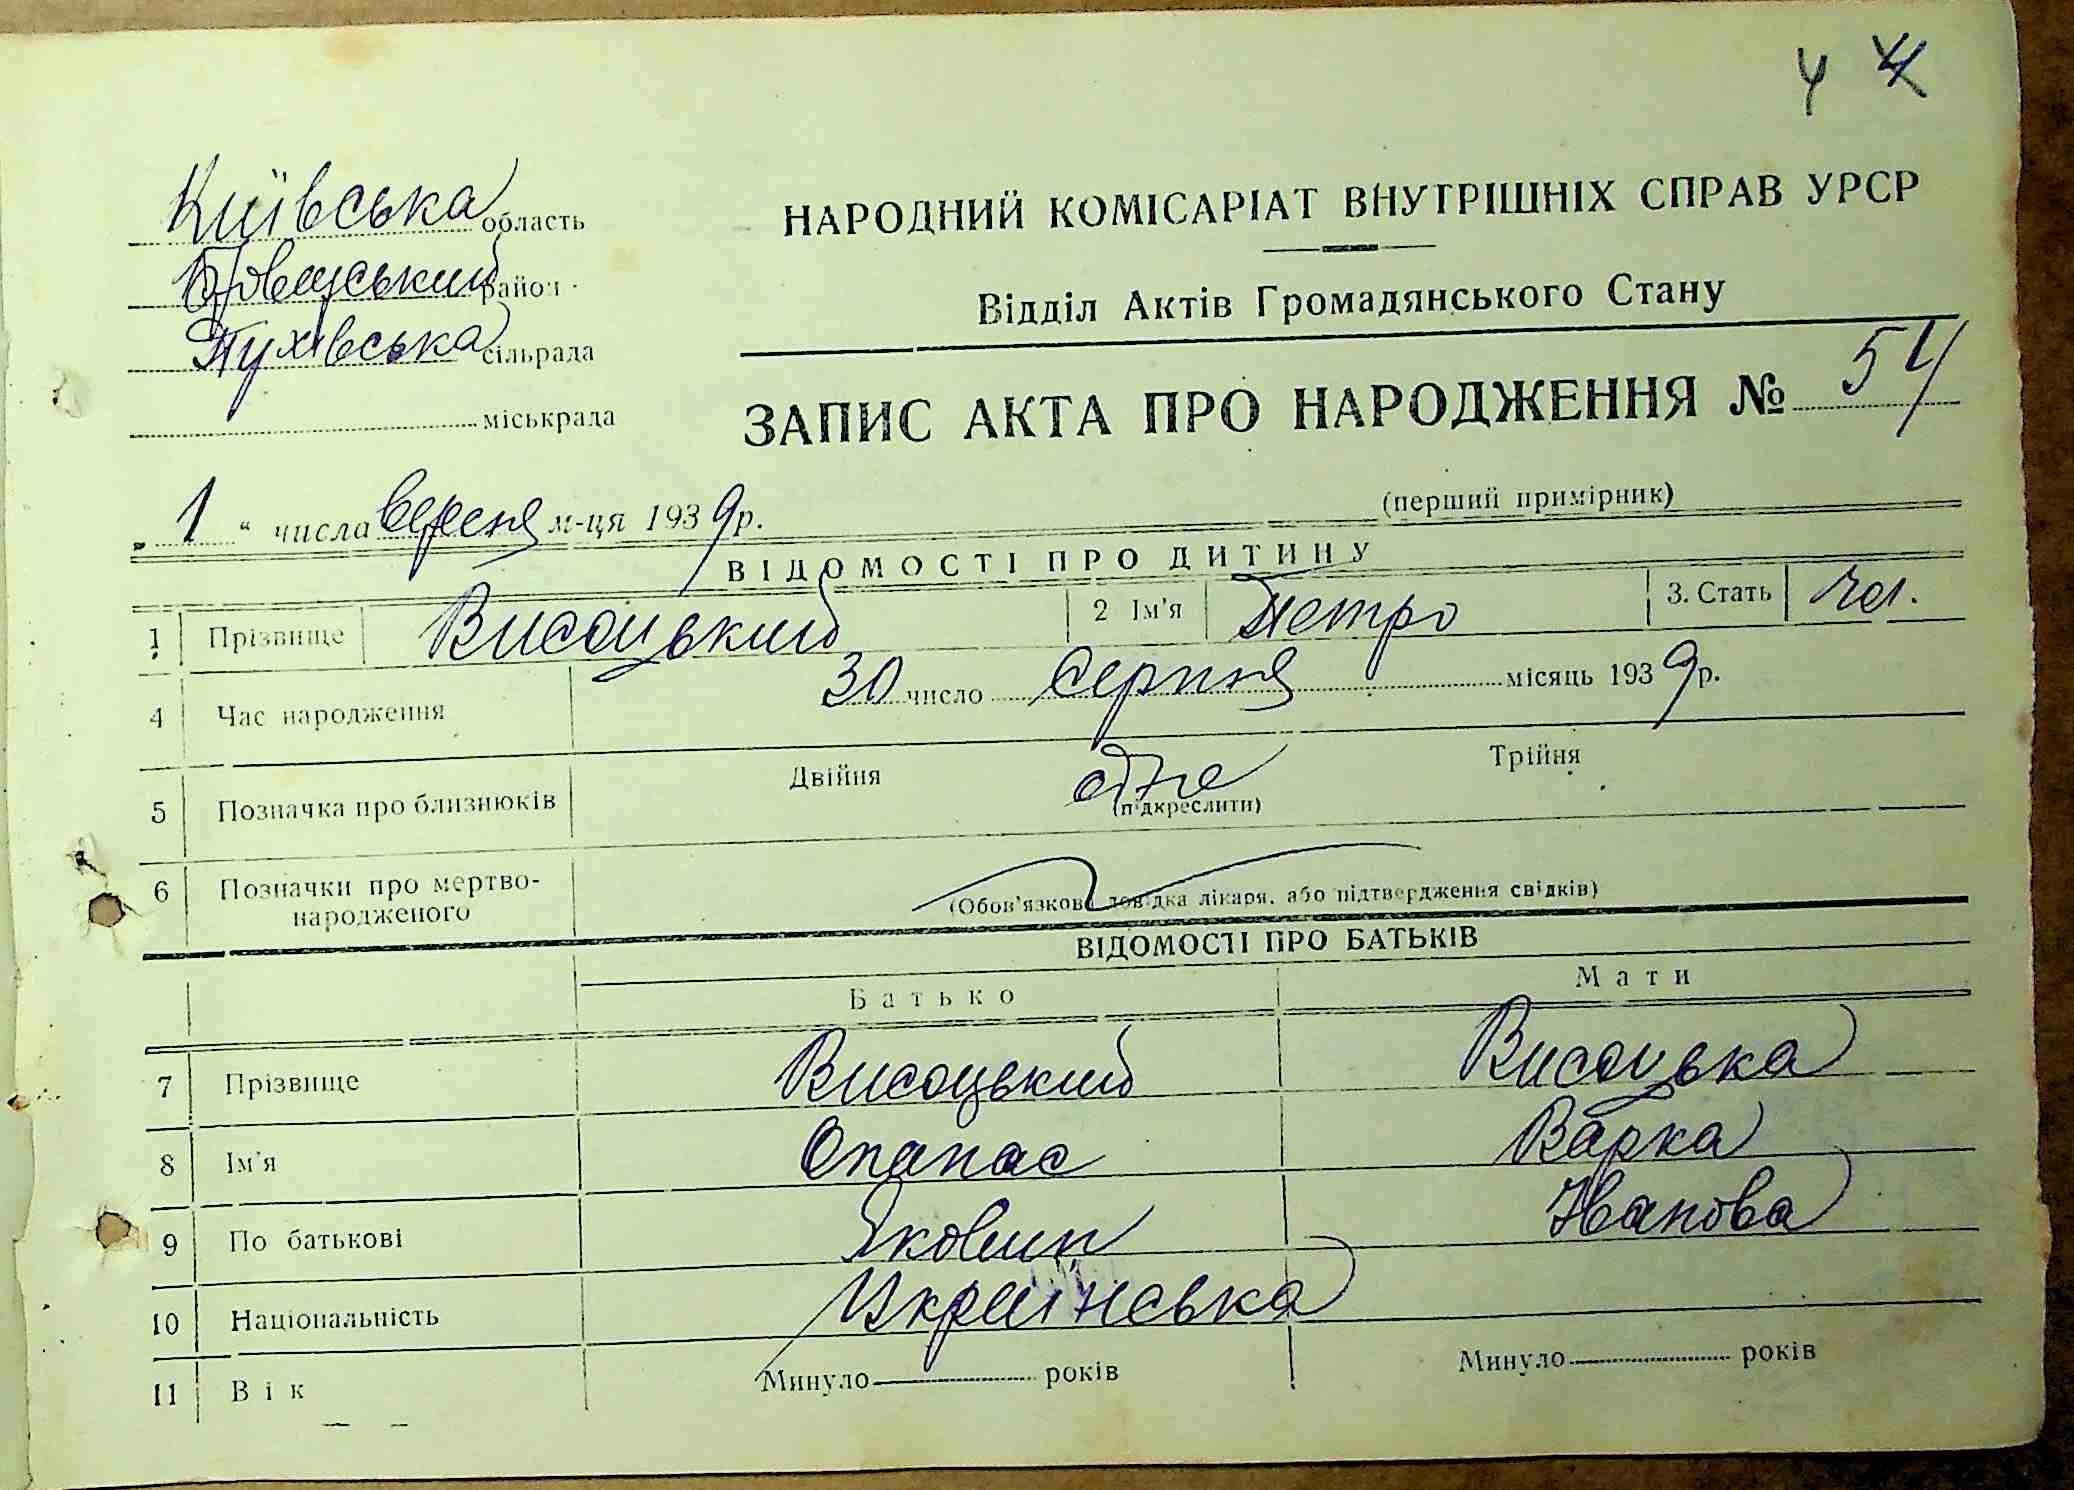 4 4
Київська область
Броварський район
Пухівська сільрада
міськрада
НАРОДНИЙ КОМІСАРІАТ ВНУТРІШНІХ СПРАВ УРСР
Відділ Актів Громадянського Стану
ЗАПИС АКТА ПРО НАРОДЖЕННЯ № 54
(перший примірник)
„ 1 “ числа вересня м-ця 1939 р.
ВІДОМОСТІ ПРО ДИТИНУ
1 Прізвище Висоцький 2 Ім'я Петро 3. Стать чол.
4 Час народження 30 число Серпня місяць 1939 р.
5 Позначка про близнюків Двійня одне Трійня
(підкреслити)
6 Позначки про мертво-
народженого (Обов'язкова довідка лікаря, або підтвердження свідків)
ВІДОМОСТІ ПРО БАТЬКІВ
Батько Мати
7 Прізвище Висоцький Висоцька
8 Ім'я Опанас Варка
9 По батькові Якович Іванова
10 Національність Українська
11 Вік Минуло років Минуло років